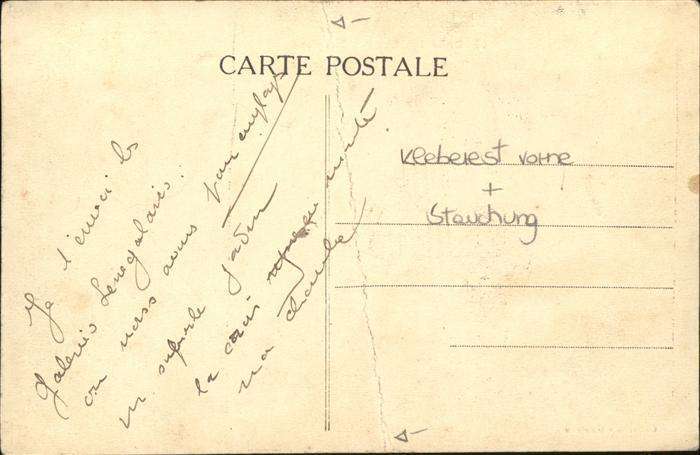 CARTE POSTALE
Je t'envoi les
Galeries Senegalaises.
on nous avons
un superbe jardin
la croix moité
ma chambre
Kleberest vorne
+
Stauchung